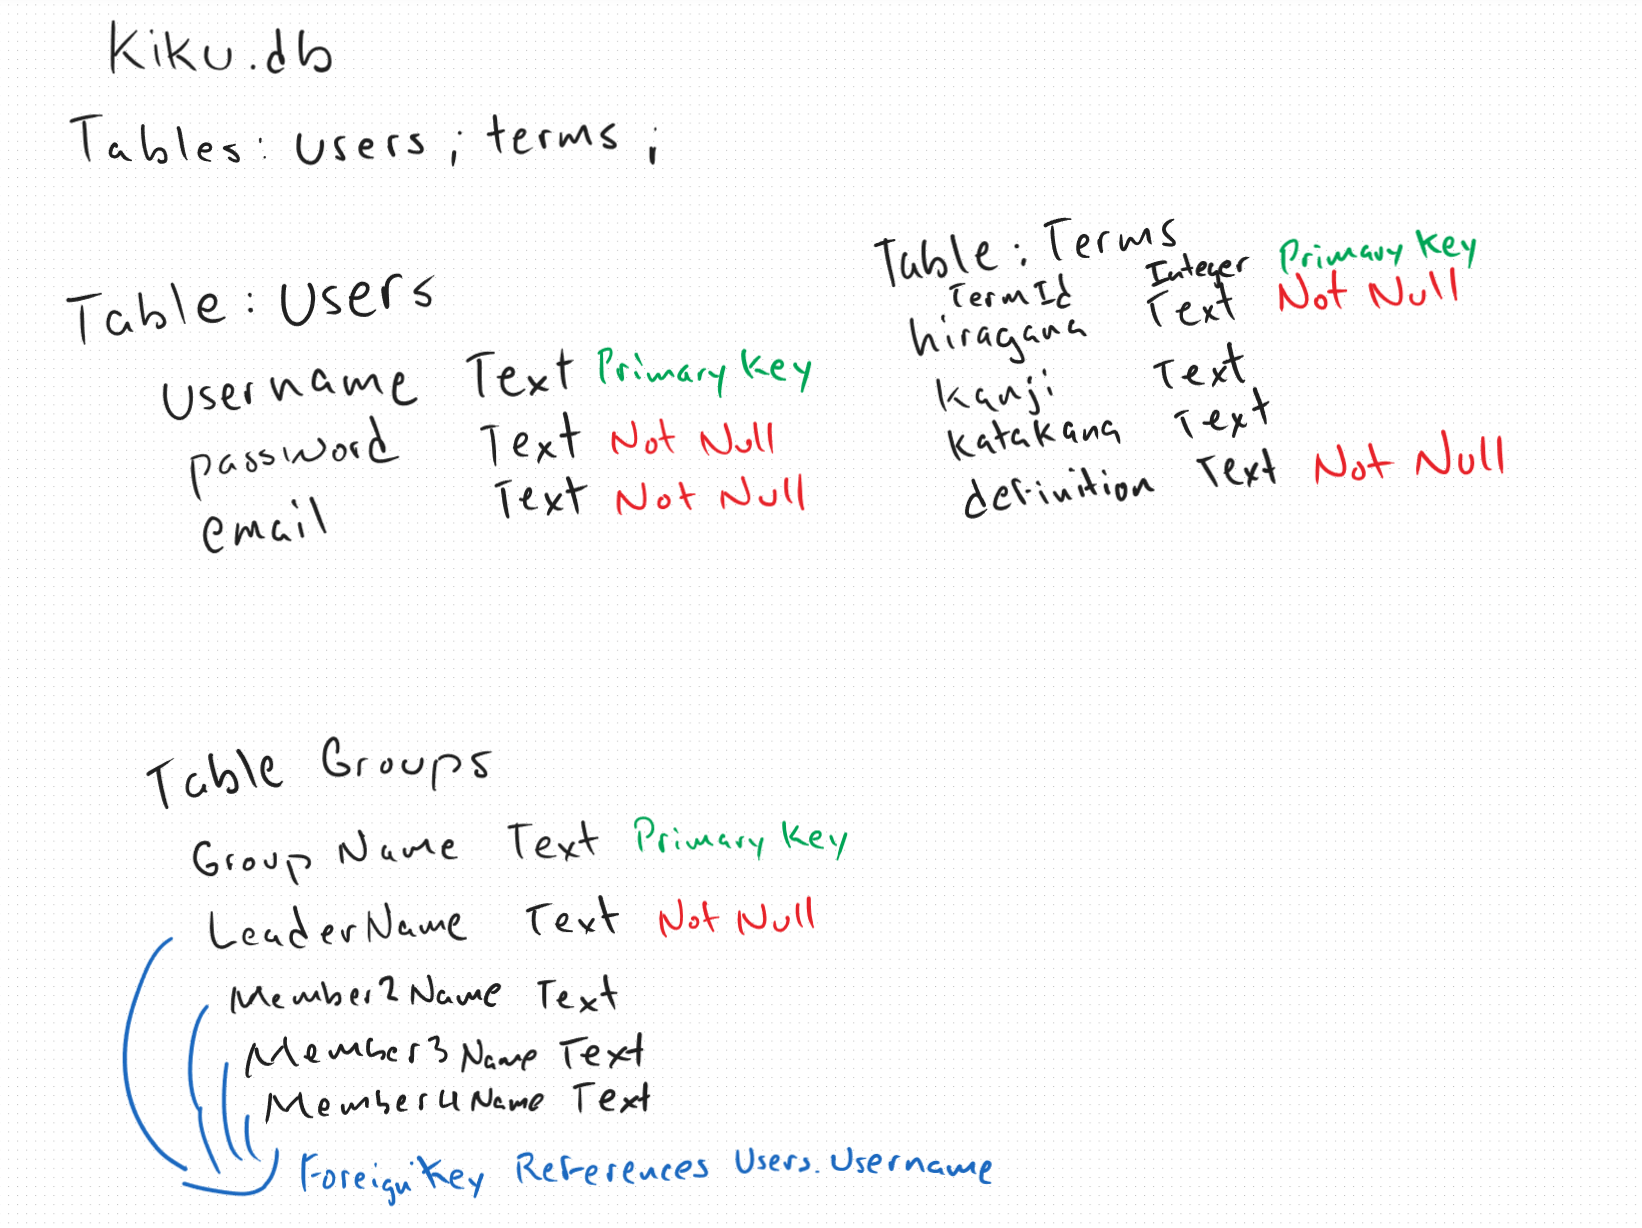 Kiku.db
Tables: users; terms;
Table: Users
username Text Primary Key
password Text Not Null
email Text Not Null
Table: Terms
TermId Integer Primary Key
hiragana Text Not Null
kanji Text
katakana Text
definition Text Not Null
Table Groups
Group Name Text Primary Key
LeaderName Text Not Null
Member2Name Text
Member3Name Text
Member4Name Text
Foreign Key References Users.Username